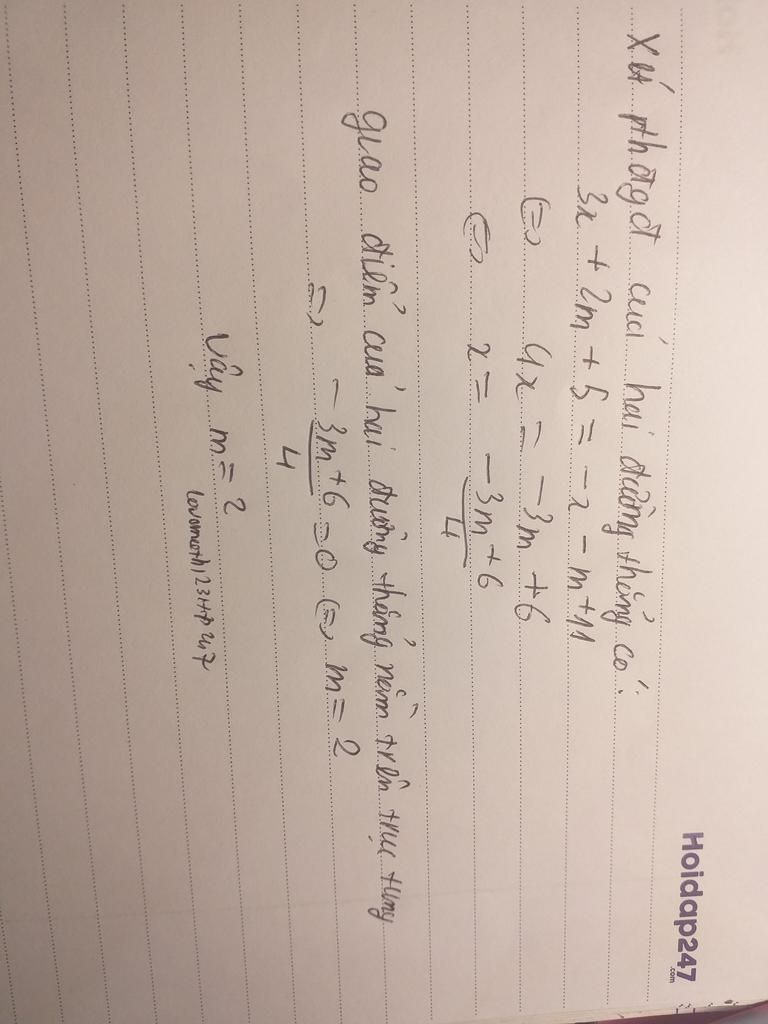 Hoidap247
.com
Xét pthđgđ của hai đường thẳng có:
3x + 2m + 5 = -x - m + 11
(=) 4x = -3m + 6
(=) x = -3m + 6
4
giao điểm của hai đường thẳng nằm trên trục tung
=> -3m + 6 = 0 (=) m = 2
4
Vậy m = 2